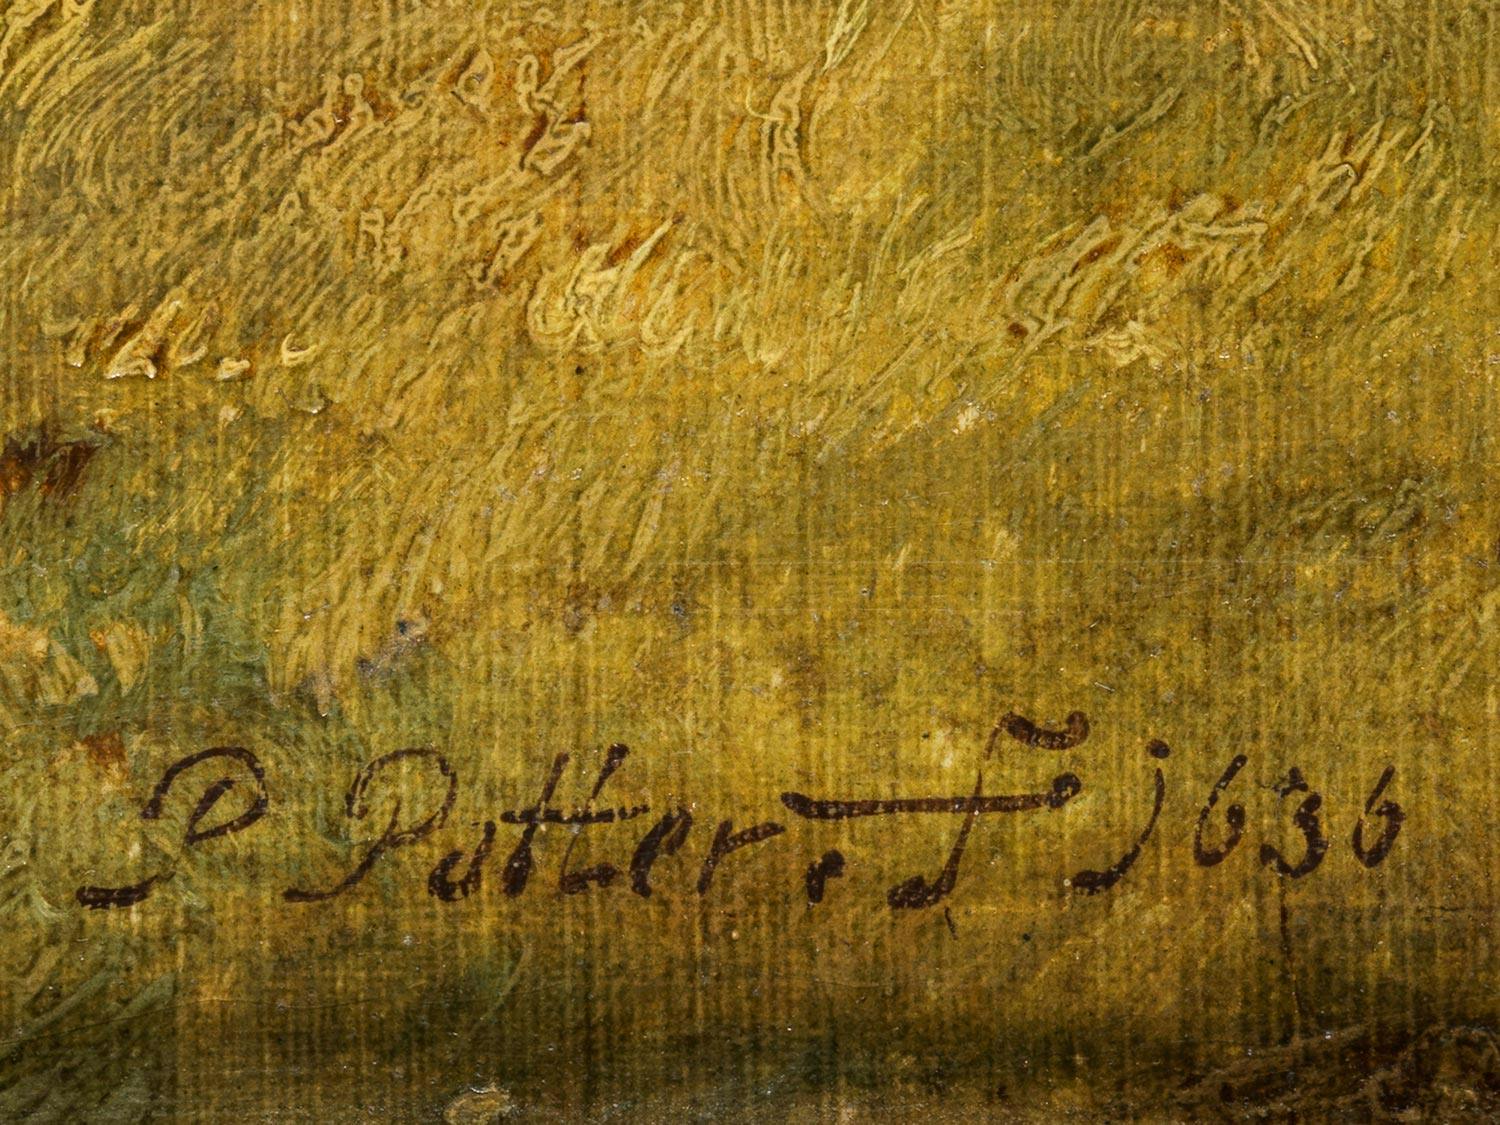 P Potter. F 1636